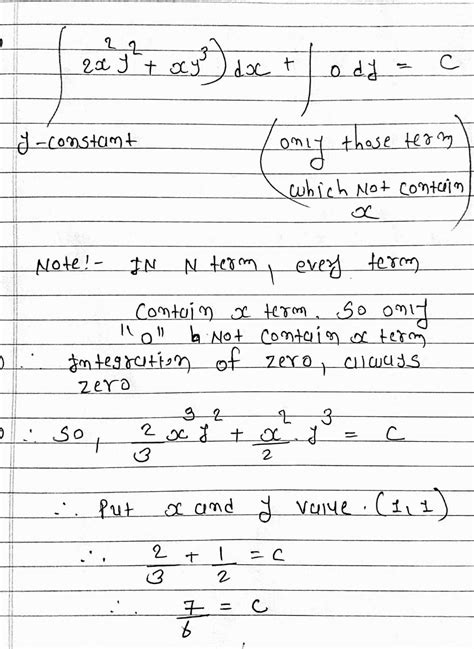 ∫ (2x²y² + xy³) dx + ∫ 0 dy = C
y-constant
(only those term
which Not contain
x)
Note!- IN N term, every term
contain x term. So only
"0" is Not contain x term
∴ Integration of zero, always
zero
∴ So, 2/3 x³y² + x²/2 . y³ = C
∴ Put x and y value . (1,1)
∴ 2/3 + 1/2 = C
∴ 7/6 = C